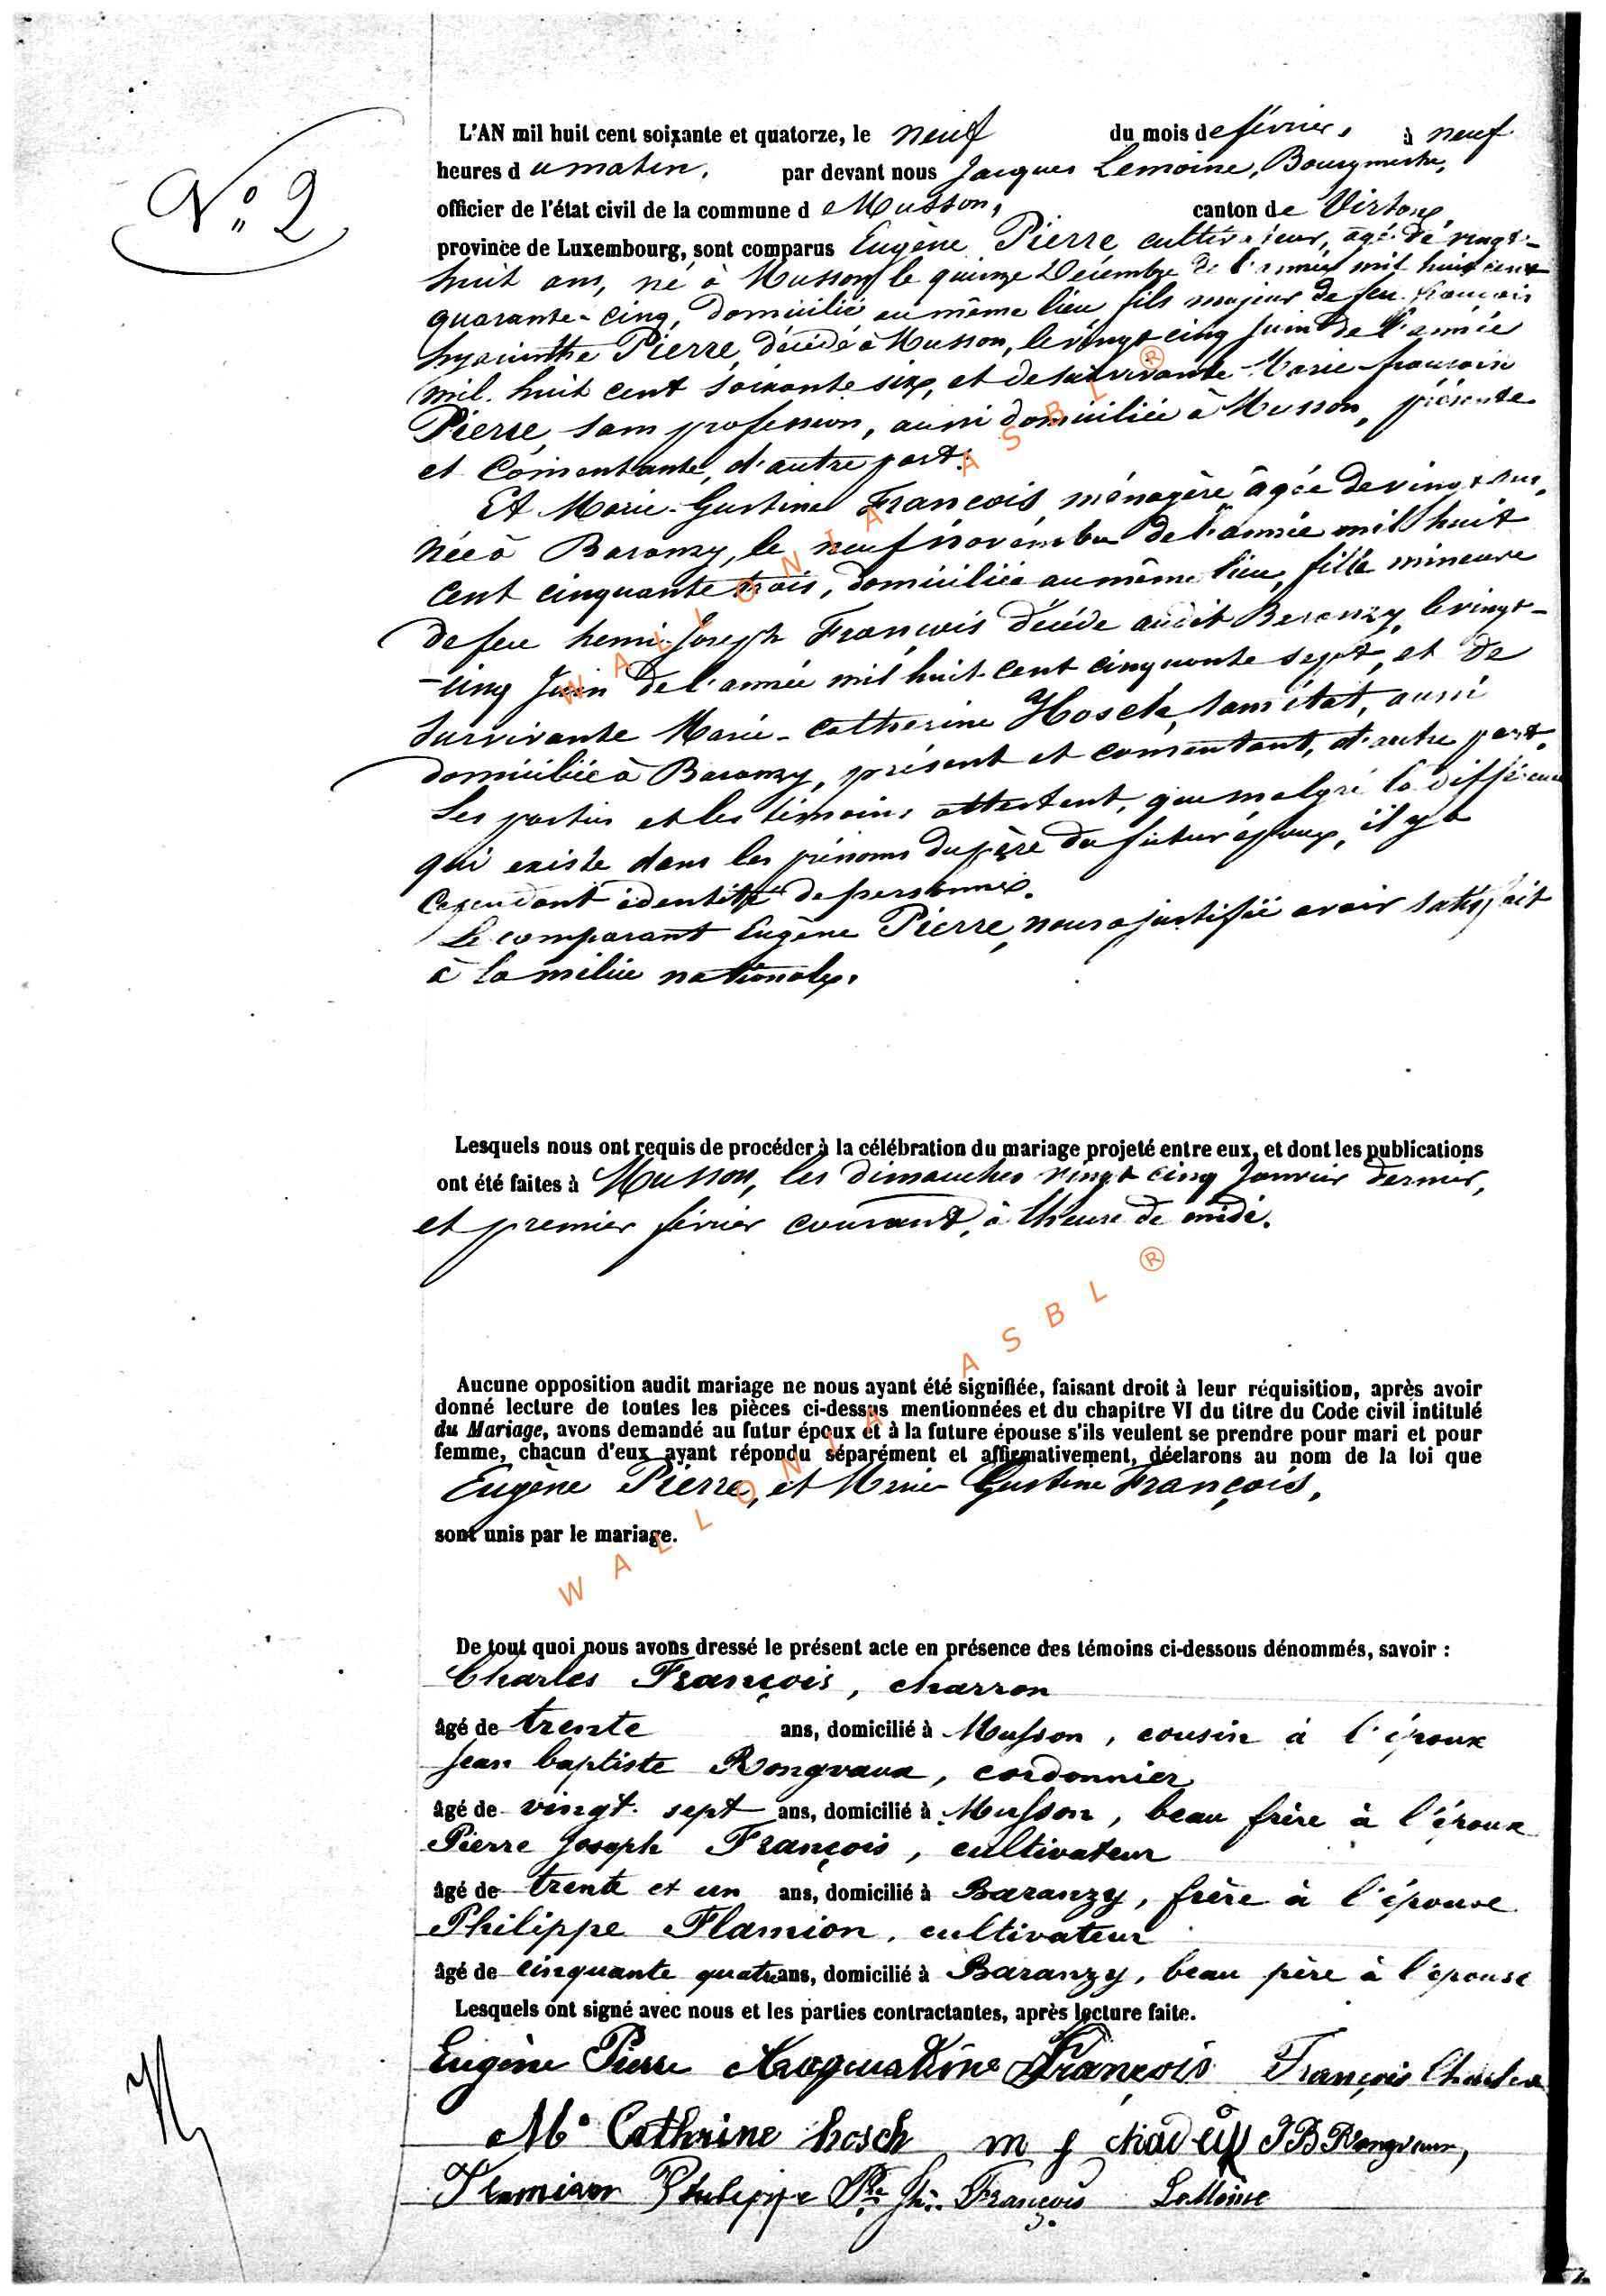 N° 2
L'AN mil huit cent soixante et quatorze, le neuf du mois de février, à neuf
heures du matin, par devant nous Jacques Lemoine, Bourgmestre,
officier de l'état civil de la commune de Musson, canton de Virton,
province de Luxembourg, sont comparus Eugène Pierre, cultivateur, âgé de vingt-
huit ans, né à Musson le quinze Décembre de l'année mil huit cent
quarante-cinq, domicilié au même lieu, fils majeur de feu françois
hyacinthe Pierre, décédé à Musson, le vingt cinq Juin de l'année
mil huit cent soixante six, et de survivante Marie-françoise
Pierre, sans profession, aussi domiciliée à Musson, présente
et Consentante, d'autre part.
Et Marie-Gustine François, ménagère âgée de vingt ans,
née à Baranzy, le neuf novembre de l'année mil huit
cent cinquante trois, domiciliée au même lieu, fille mineure
de feu henri-Joseph François décédé audit Baranzy, le vingt-
-cinq Juin de l'année mil huit cent cinquante sept, et de
survivante Marie-Catherine Hosch, sans état, aussi
domiciliée à Baranzy, présent et consentant, d'autre part.
Les parties et les témoins attestent, que malgré la différence
qui existe dans les prénoms du père du futur époux, il y a
cependant identité de personnes.
Le comparant Eugène Pierre, nous a justifié avoir satisfait
à la milice nationale.
Lesquels nous ont requis de procéder à la célébration du mariage projeté entre eux, et dont les publications
ont été faites à Musson, les dimanches vingt cinq Janvier dernier,
et premier février courant, à l'heure de midi.
Aucune opposition audit mariage ne nous ayant été signifiée, faisant droit à leur réquisition, après avoir
donné lecture de toutes les pièces ci-dessus mentionnées et du chapitre VI du titre du Code civil intitulé
du Mariage, avons demandé au futur époux et à la future épouse s'ils veulent se prendre pour mari et pour
femme, chacun d'eux ayant répondu séparément et affirmativement, déclarons au nom de la loi que
Eugène Pierre, et Marie Gustine François,
sont unis par le mariage.
De tout quoi nous avons dressé le présent acte en présence des témoins ci-dessous dénommés, savoir :
Charles François, charron
âgé de trente ans, domicilié à Musson, cousin à l'époux
Jean baptiste Rongvaux, cordonnier
âgé de vingt-sept ans, domicilié à Musson, beau frère à l'époux
Pierre Joseph François, cultivateur
âgé de trente et un ans, domicilié à Baranzy, frère à l'épouse
Philippe Flamion, cultivateur
âgé de cinquante quatre ans, domicilié à Baranzy, beau père à l'épouse
Lesquels ont signé avec nous et les parties contractantes, après lecture faite.
Eugène Pierre François François Charles
Me Cathrine hosch m f J B Rongvaux,
Flamion Philippe Pre Jh François LeMoine
WALLONIA ASBL ®
WALLONIA ASBL ®